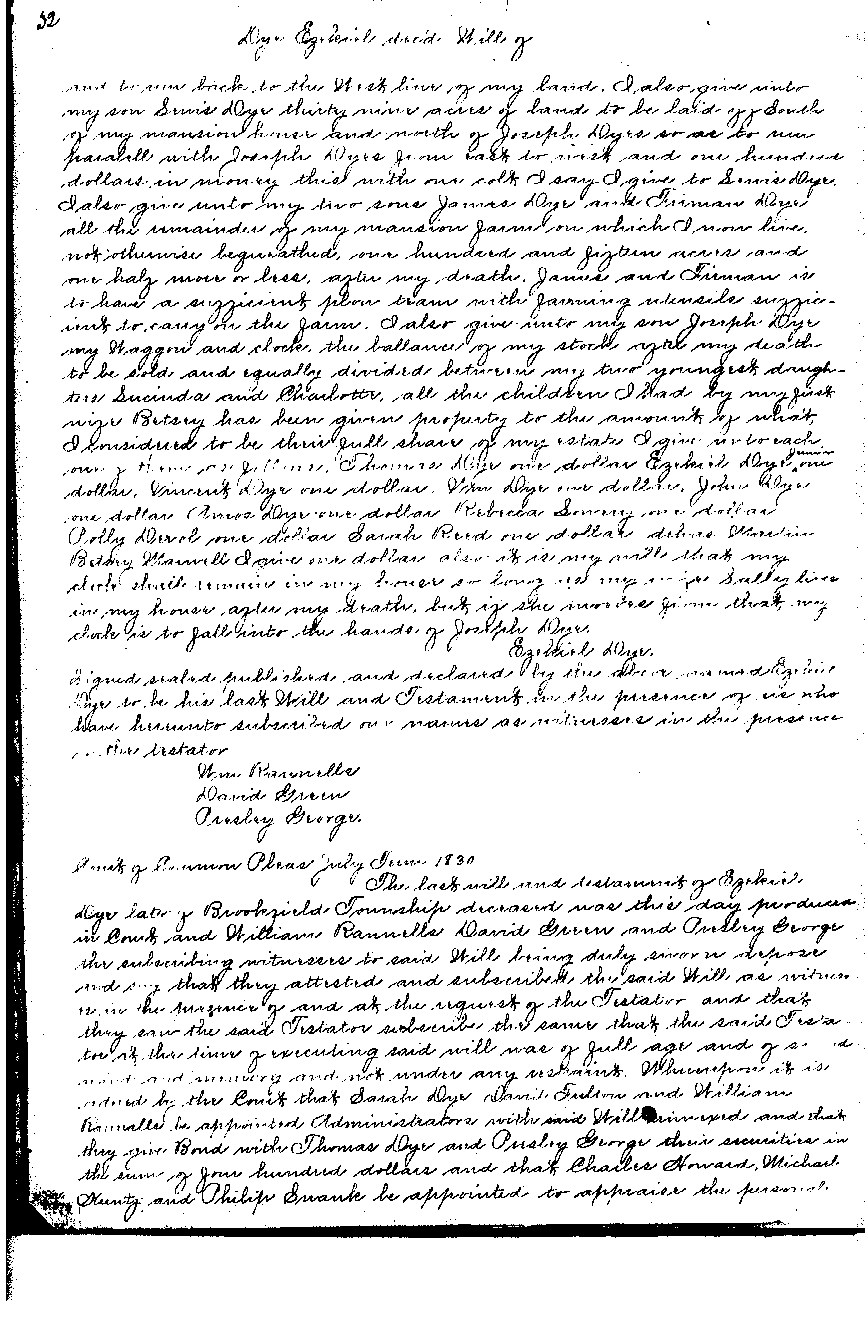 32
Dye Ezekiel decd. Will of
and to run back to the West line of my land. I also give unto
my son Lewis Dye thirty nine acres of land to be laid off South
of my mansion house and north of Joseph Dyes so as to run
paralell with Joseph Dyes from east to west and one hundred
dollars in money this with one colt I say I give to Lewis Dye.
I also give unto my two sons James Dye and Firman Dye
all the remainder of my mansion farm on which I now live,
not otherwise bequeathed, one hundred and fifteen acres and
one half more or less, after my death. James and Firman is
to have a sufficient plow team with farming utensils suffic-
ient to carry on the farm. I also give unto my son Joseph Dye
my Waggon and clock, the ballance of my stock after my death
to be sold and equally divided between my two youngest daugh-
ters Lucinda and Charlotte, all the children I had by my first
wife Betsey has been given property to the amount of what
I considered to be their full share of my estate I give unto each
one of them as follows, Thomas Dye one dollar Ezekiel Dye Junior one
dollar, Vincent Dye one dollar. Wm Dye one dollar, John Dye
one dollar Amos Dye one dollar Rebecca one dollar
Polly one dollar Sarah Reed one dollar
Betsey I give one dollar also it is my will that my
clock shall remain in my house so long as my wife Sally lives
in my house after my death, but if she moves from that my
clock is to fall into the hands of Joseph Dye.
Ezekiel Dye.
Signed sealed published and declared by the above named Ezekiel
Dye to be his last Will and Testament in the presence of us who
have hereunto subscribed our names as witnesses in the presence
of the testator
Wm Rannells
David Green
Presley George.
Court of Common Pleas July Term 1830
The last will and testament of Ezekiel
Dye late of Brookfield Township deceased was this day produced
in Court and William Rannells David Green and Presley George
the subscribing witnesses to said Will being duly sworn depose
and say that they attested and subscribed the said Will as witness
es in the presence of and at the request of the Testator and that
they saw the said Testator subscribe the same that the said Testa
tor at the time of executing said will was of full age and of sound
mind and memory and not under any restraint. Whereupon it is
ordered by the Court that Sarah Dye David Fulton and William
Rannells be appointed Administrators with said Will annexed and that
they give Bond with Thomas Dye and Presley George their securities in
the sum of four hundred dollars and that Charles Howard, Michael
and Philip Swank be appointed to appraise the personal